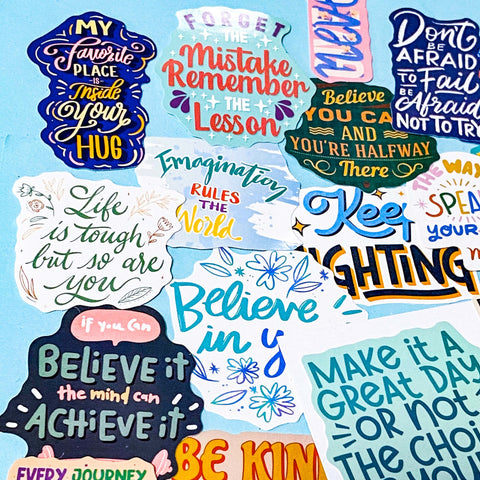 MY
Favorite
PLACE
IS
Inside
Your
HUG
FORGET
THE
Mistake
Remember
THE
Lesson
Don't
BE
AFRAID
TO Fail
BE
Afraid
NOT TO TRY
Believe
YOU CAN
AND
YOU'RE HALFWAY
There
Imagination
RULES
THE
World
THE WAY
SPEA
YOUR
Keep
FIGHTING
Life
is tough
but so are
you
Believe
in y
if you can
BELIEVE it
the mind can
ACHIEVE it
MAKE IT A
GREAT DAY
OR NOT
THE CHOI
BE KIN
EVERY JOURNEY